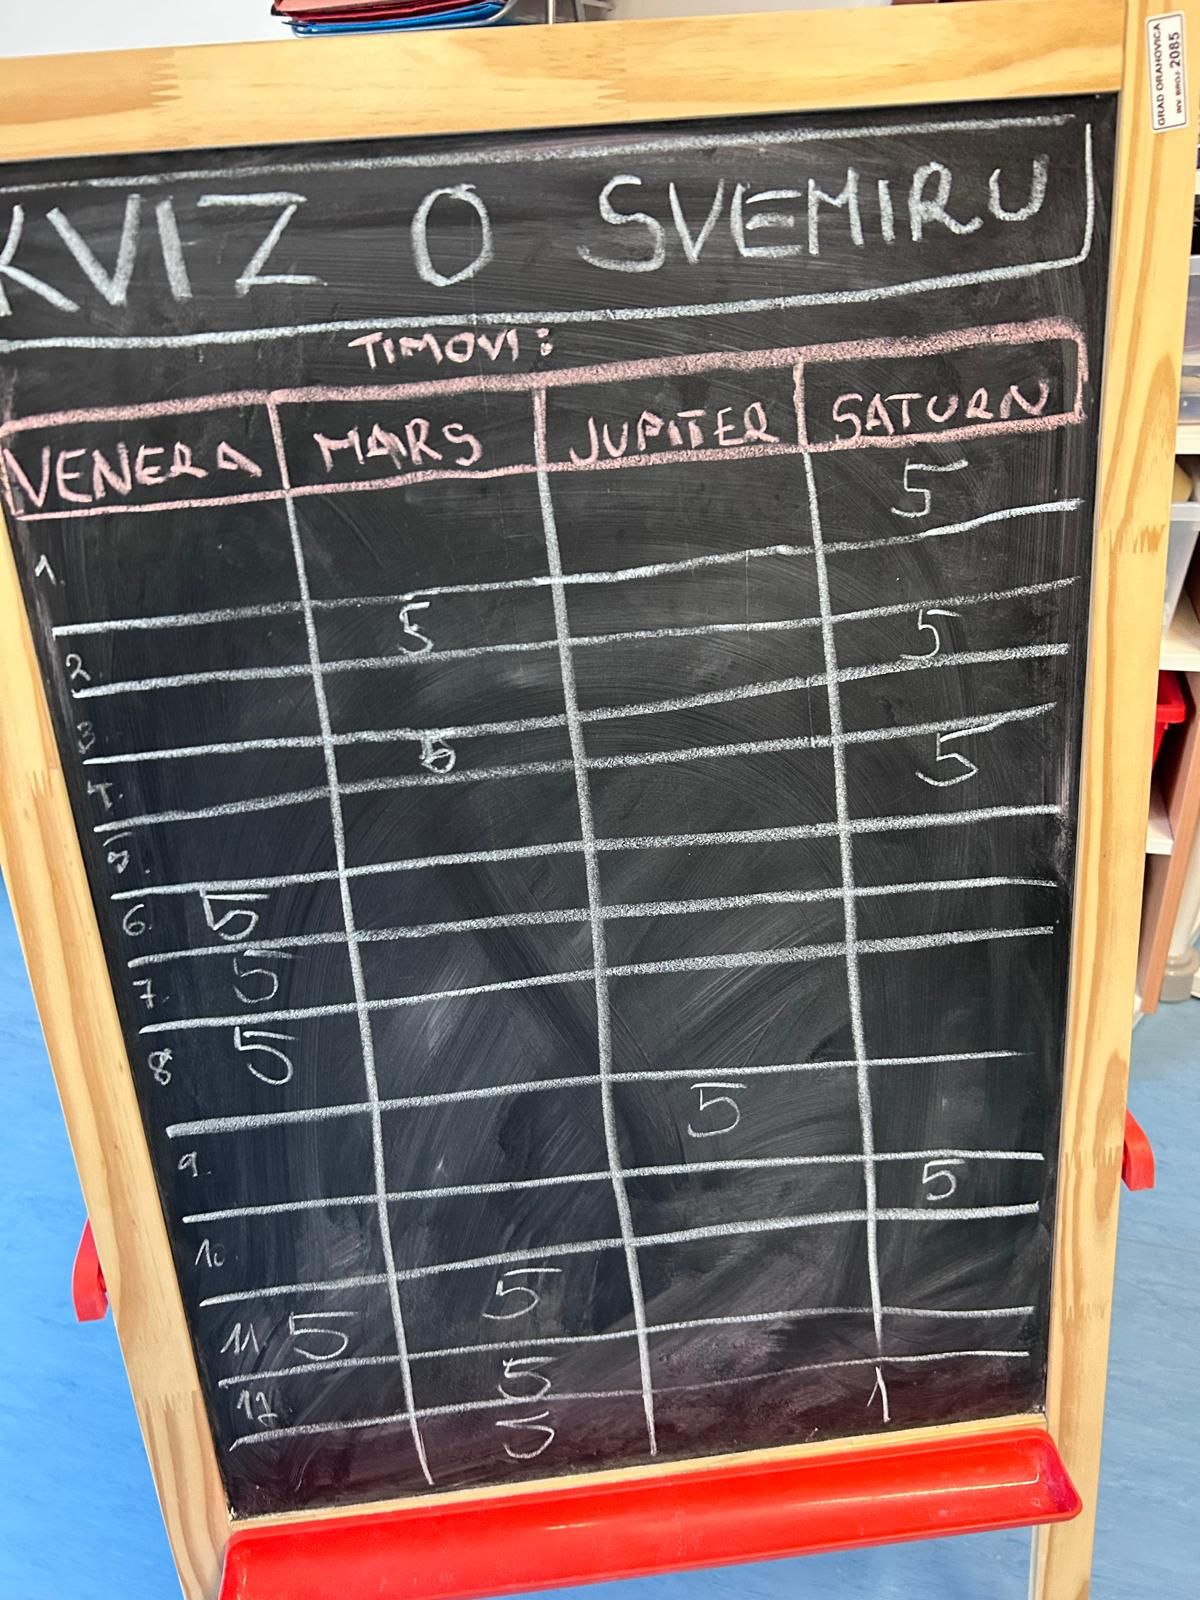 GRAD ORAHOVICA
INV. BROJ 2085
KVIZ O SVEMIRU
TIMOVI:
VENERA MARS JUPITER SATURN
1. 5
2. 5 5
3.
4. 5 5
5.
6. 5
7. 5
8 5
9. 5
10. 5
11 5 5
12 5
5 1